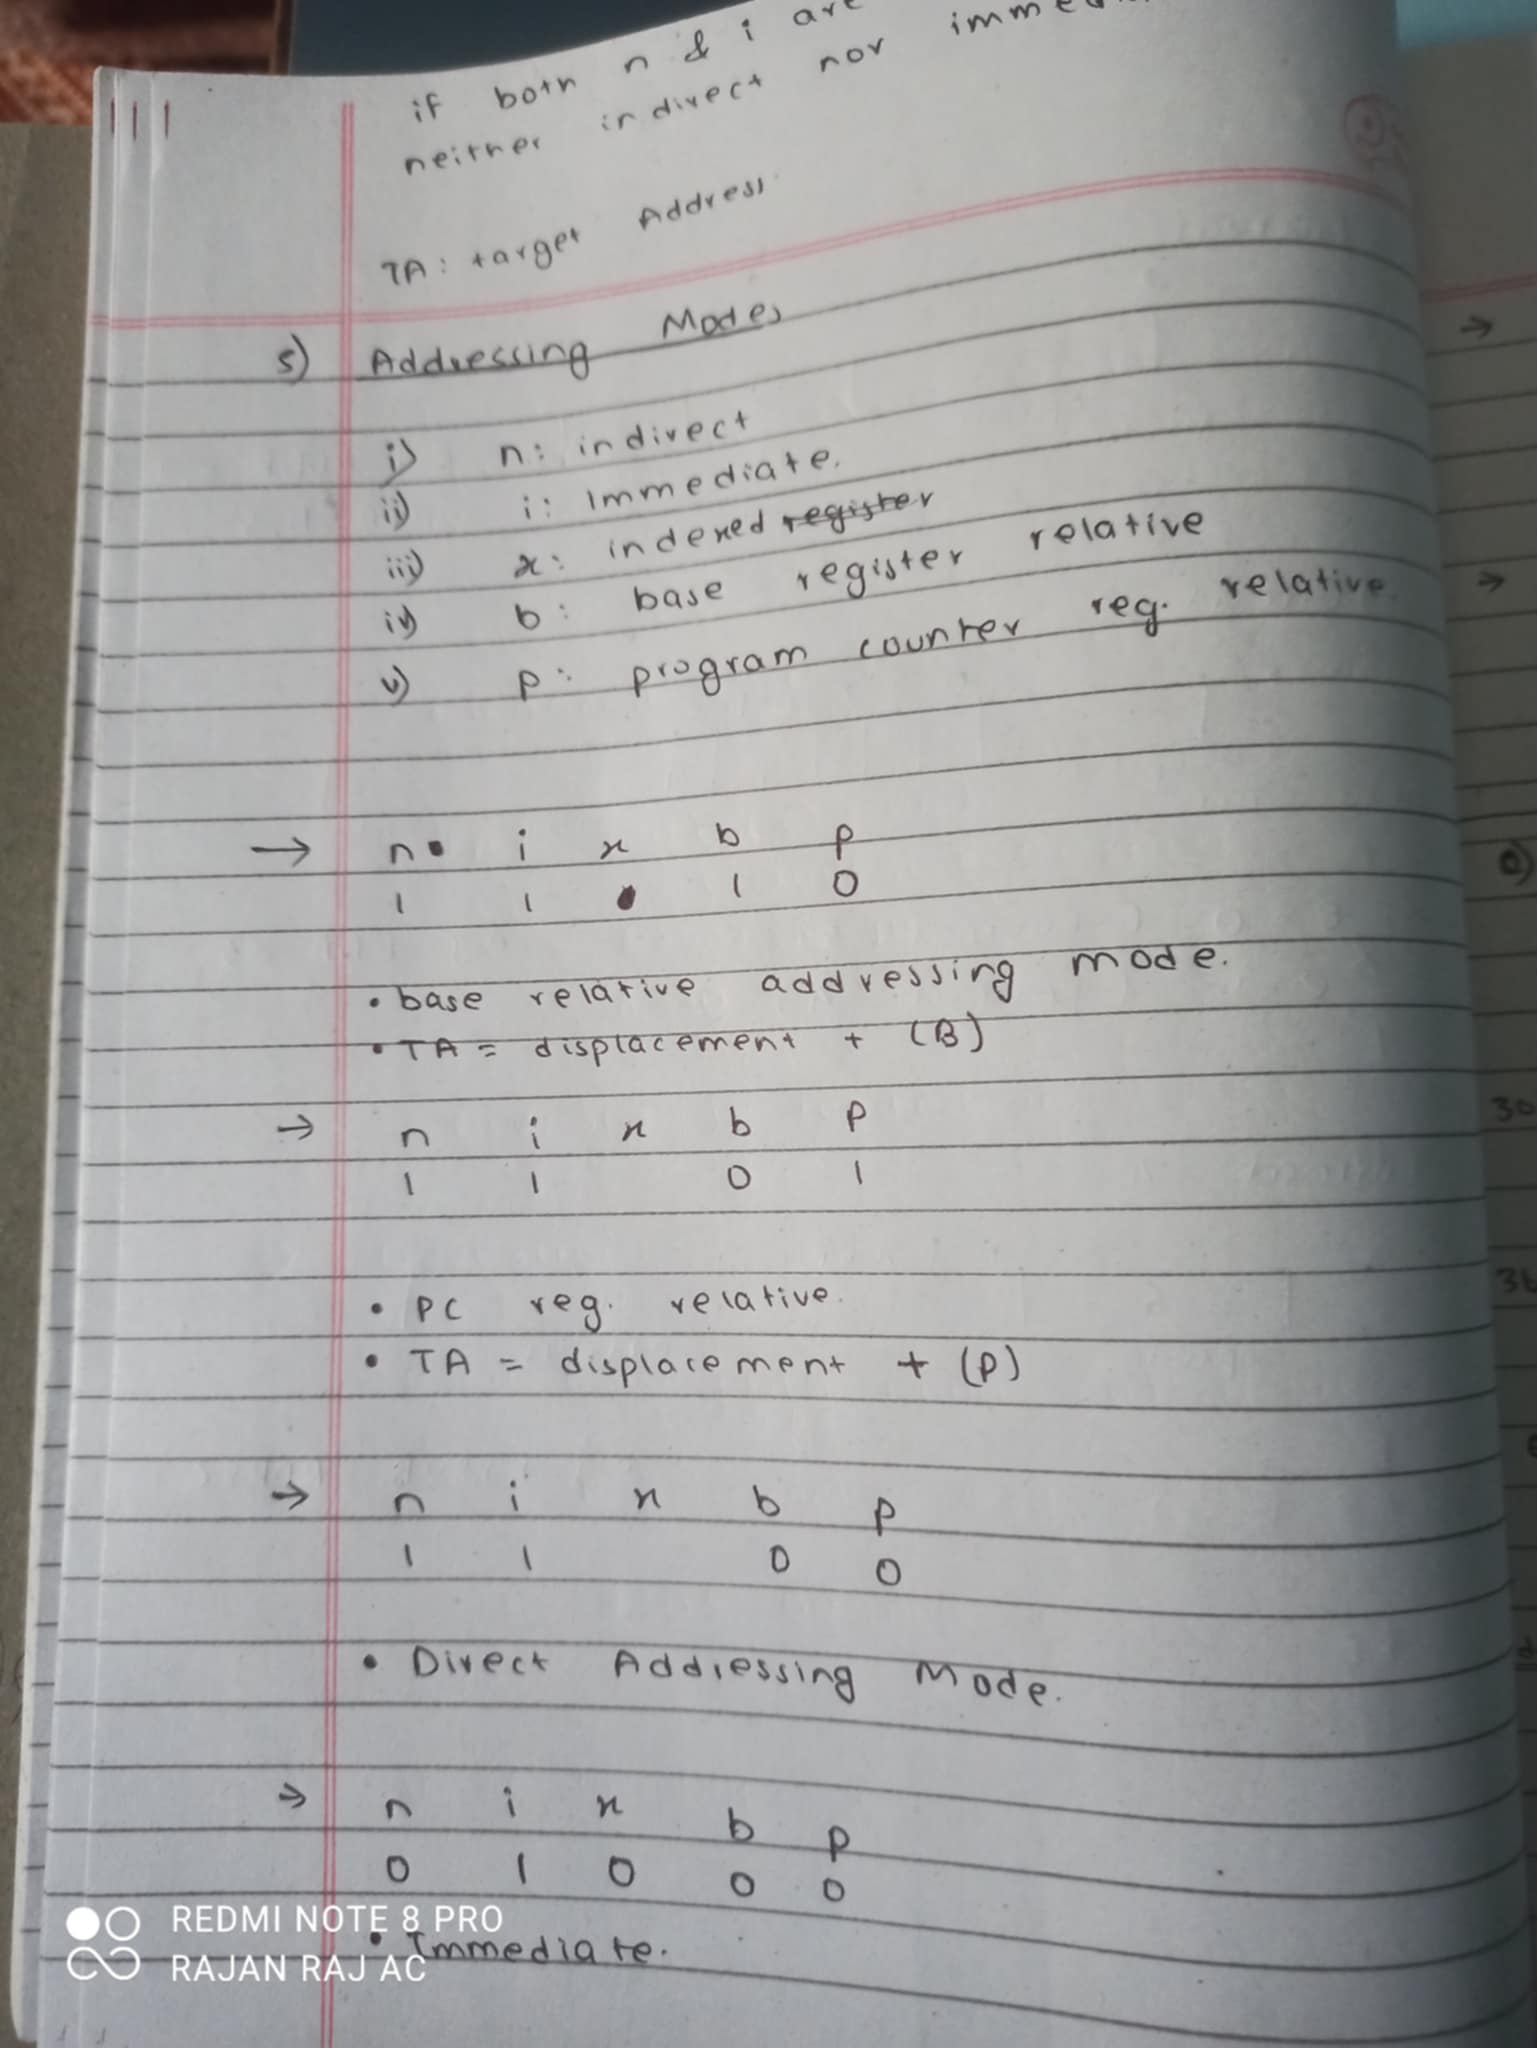 if both n & i are
neither indirect nor
TA: target Address
5) Addressing Modes
i) n: indirect
ii) i: Immediate.
iii) x: indexed register
iv) b: base register relative
v) p: program counter reg. relative
→ n i x b p
1 1 1 0
• base relative addressing mode.
• TA = displacement + (B)
→ n i x b p
1 1 0 1
• PC reg. relative.
• TA = displacement + (P)
→ n i x b p
1 1 0 0
• Direct Addressing Mode.
→ n i x b p
0 1 0 0 0
• Immediate.
REDMI NOTE 8 PRO
RAJAN RAJ AC